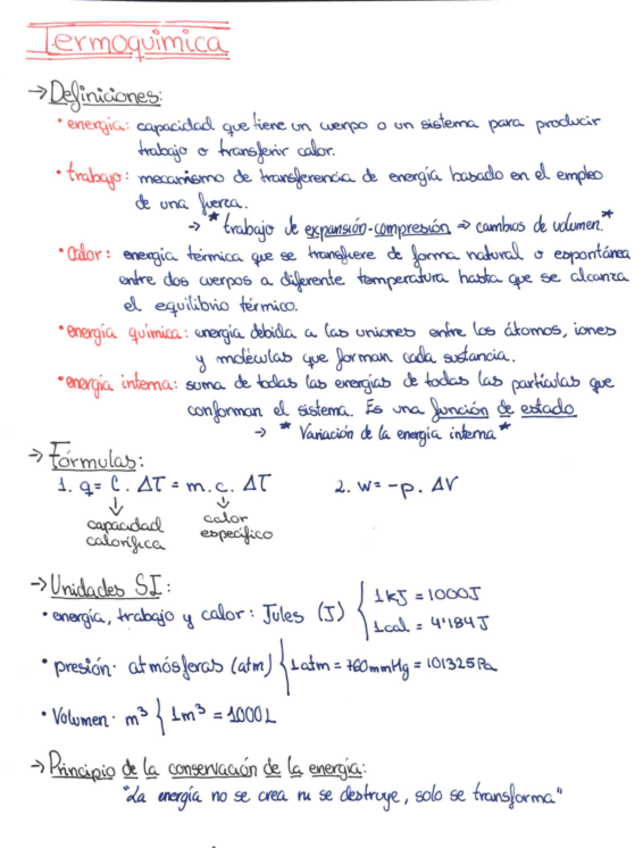 Termoquimica
→ Definiciones:
• energía: capacidad que tiene un cuerpo o un sistema para producir
trabajo o transferir calor.
• trabajo: mecanismo de transferencia de energía basado en el empleo
de una fuerza.
→ * trabajo de expansión-compresión ⇒ cambios de volumen.*
• Calor: energía térmica que se transfiere de forma natural o espontánea
entre dos cuerpos a diferente temperatura hasta que se alcanza
el equilibrio térmico.
• energía química: energía debida a las uniones entre los átomos, iones
y moléculas que forman cada sustancia.
• energía interna: suma de todas las energías de todas las partículas que
conforman el sistema. Es una función de estado
→ * Variación de la energía interna *
→ Fórmulas:
1. q = C . ΔT = m . c . ΔT 2. w = -p . ΔV
↓ ↓
capacidad calor
calorífica específico
→ Unidades SI:
• energía, trabajo y calor: Jules (J) { 1kJ = 1000J
1cal = 4'184J
• presión· atmósferas (atm) { 1atm = 760mmHg = 101325Pa
• Volumen· m³ { 1m³ = 1000L
→ Principio de la conservación de la energía:
"La energía no se crea ni se destruye, solo se transforma"